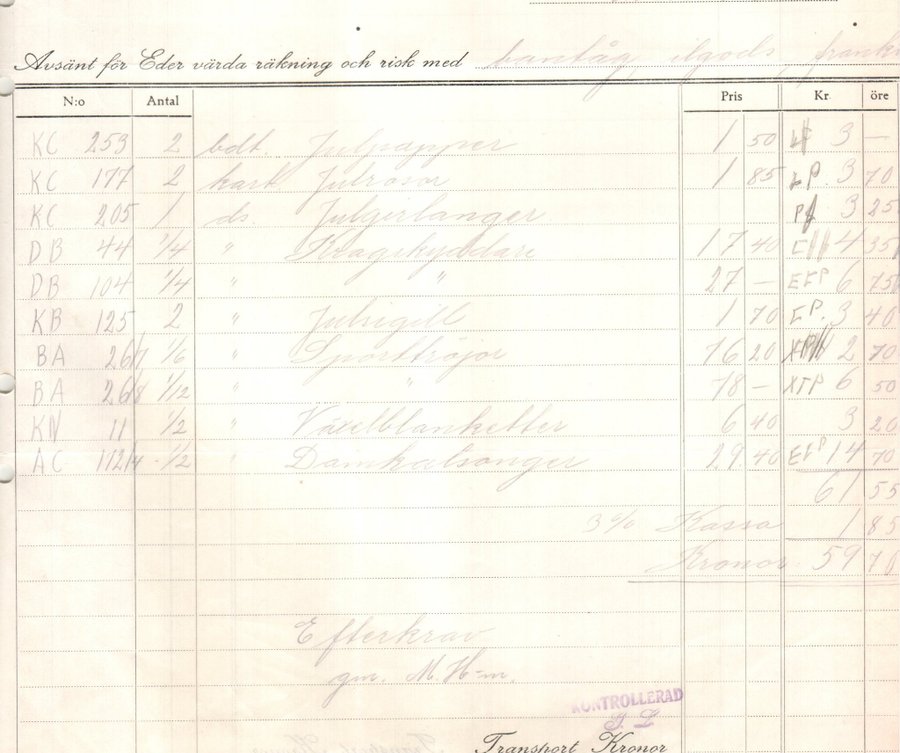 Avsänt för Eder värda räkning och risk med bantåg, ilgods, frank
N:o Antal Pris Kr öre
KC 253 2 bdt. Julpapper 1 50 3 —
KC 177 2 kart Julrosor 1 85 LP. 3 70
KC 205 1 ds. Julgirlanger 3 25
DB 44 1/4 " Kragskyddare 17 40 4 35
DB 104 1/4 " " 27 — EFP 6 75
KB 125 2 " Julsigill 1 70 EP. 3 40
BA 26/7 1/6 " Sporttröjor 16 20 2 70
BA 26/8 1/12 " " 78 — XTP 6 50
KN 11 1/2 " Växelblanketter 6 40 3 20
AC 112/4 1/2 " Damkalsonger 29 40 EFP 14 70
61 55
3 % Kassa 1 85
Kronor 59 70
Efterkrav
gm. M. H-m.
KONTROLLERAD
Transport Kronor